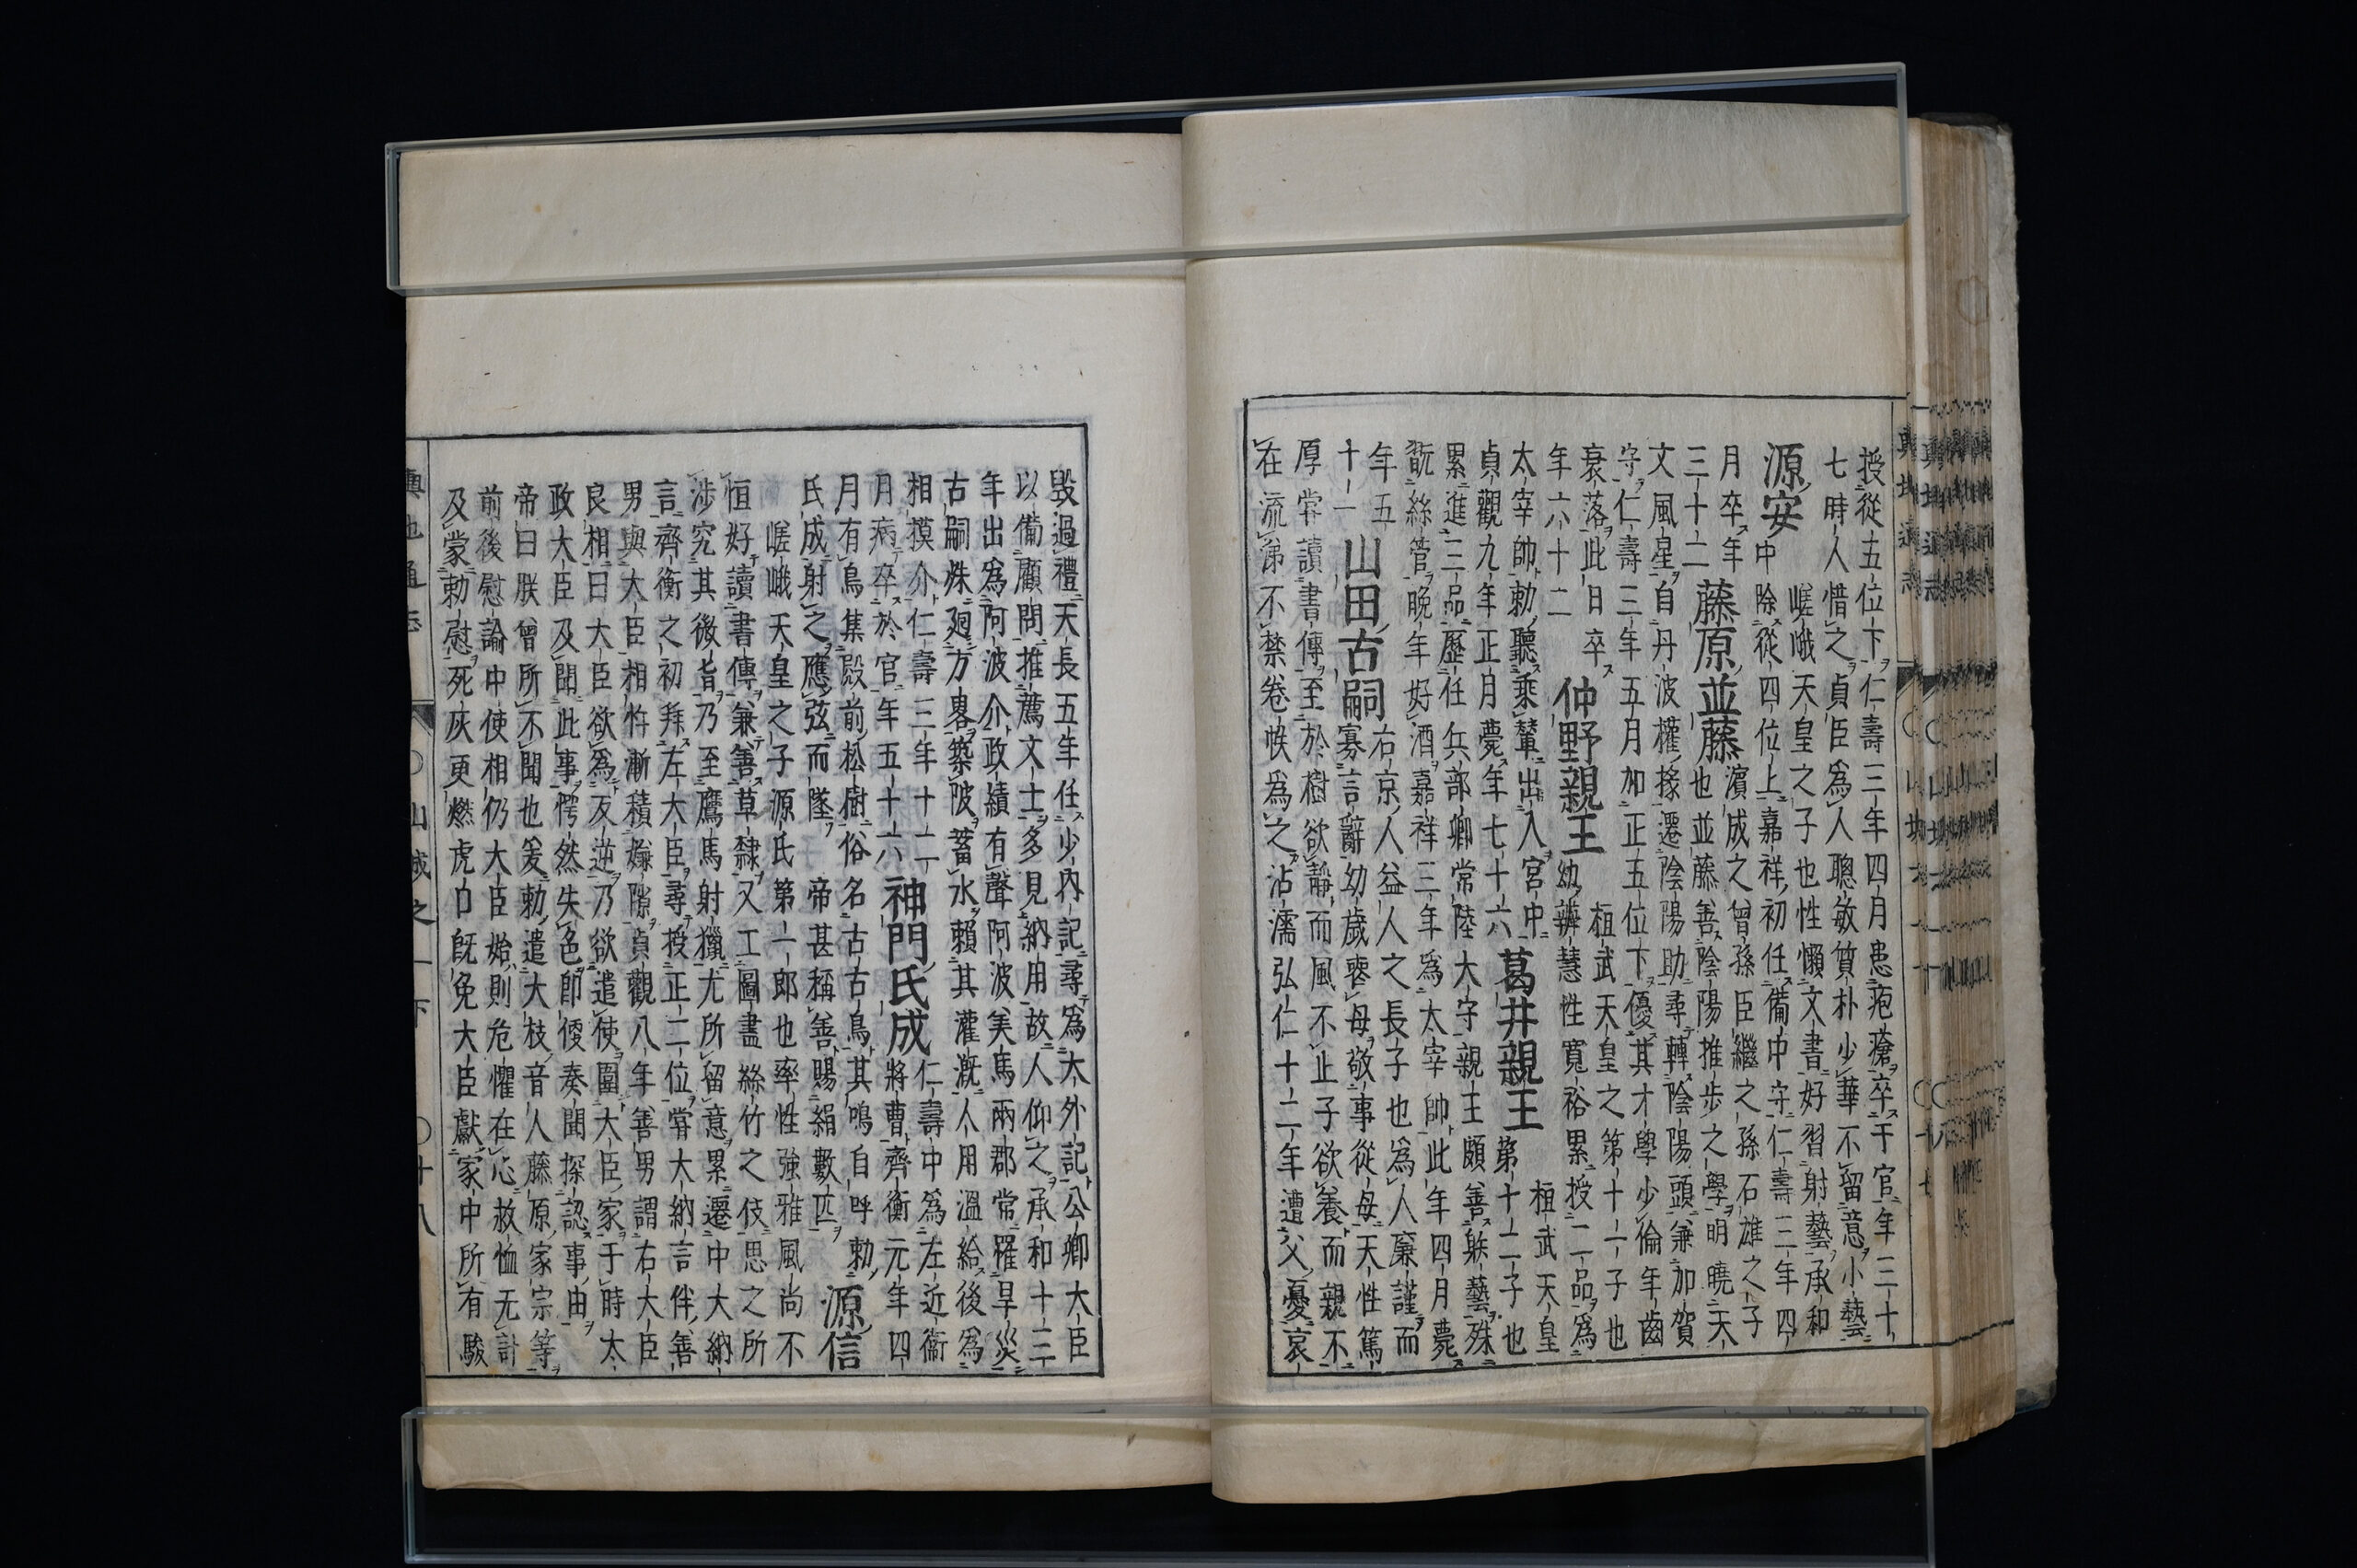 授從五位下仁壽三年四月患疱瘡卒于官年三十
七時人惜之貞臣為人聰敏質朴少華不留意小藝
源安 嵯峨天皇之子也性懶文書好習射藝承和
中除從四位上嘉祥初任備中守仁壽三年四
月卒年三十二
藤原並藤 濱成之曾孫臣繼之孫石雄之子
也並藤善陰陽推步之學明曉天
文風星自丹波權掾遷陰陽助尋轉陰陽頭兼加賀
守仁壽三年五月加正五位下優其才學少倫年齒
衰落此日卒年六十二
仲野親王 桓武天皇之第十二子也
幼辨慧性寬裕累授二品為
太宰帥勅聽乘輦出入宮中
貞觀九年正月薨年七十六
葛井親王 桓武天皇
第十二子也
累進三品歷任兵部卿常陸大守親王頗善躲藝殊
翫絲管晚年好酒嘉祥三年為太宰帥此年四月薨
年五十一
山田古嗣 右京人益人之長子也為人廉謹而
寡言辭幼歲喪母敬事從母天性篤
厚常讀書傳至於樹欲靜而風不止子欲養而親不
在流涕不禁卷帙為之沾濡弘仁十二年遭父憂哀
毀過禮天長五年任少內記尋為大外記公卿大臣
以備顧問推薦文士多見納用故人仰之承和十三
年出為阿波介政績有聲阿波美馬兩郡常罹旱災
古嗣殊廻方畧築陂蓄水賴其灌漑人用溫給後為
相摸介仁壽三年十二
月病卒於官年五十六
神門氏成 仁壽中為左近衛
將曹齊衡元年四
月有鳥集殿前松樹俗名古古鳥其鳴自呼勅
氏成射之應弦而墜 帝甚稱善賜絹數匹
源信
嵯峨天皇之子源氏第一郎也率性強雅風尚不
恒好讀書傳兼善草隸又工圖畫絲竹之伎思之所
涉究其微旨乃至鷹馬射獵尤所留意累遷中大納
言齊衡之初拜左大臣尋授正二位當大納言伴善
男與大臣相忤漸積嫌隙貞觀八年善男謂右大臣
良相曰大臣欲為反逆乃欲遣使圍大臣家于時太
政大臣及聞此事愕然失色即便奏聞探認事由
帝曰朕曾所不聞也爰勅遣大枝音人藤原家宗等
前後慰諭中使相仍大臣始則危懼在心赦恤无計
及蒙勅慰死灰更燃虎口既免大臣獻家中所有駿
輿地通志 山城之一下 十八